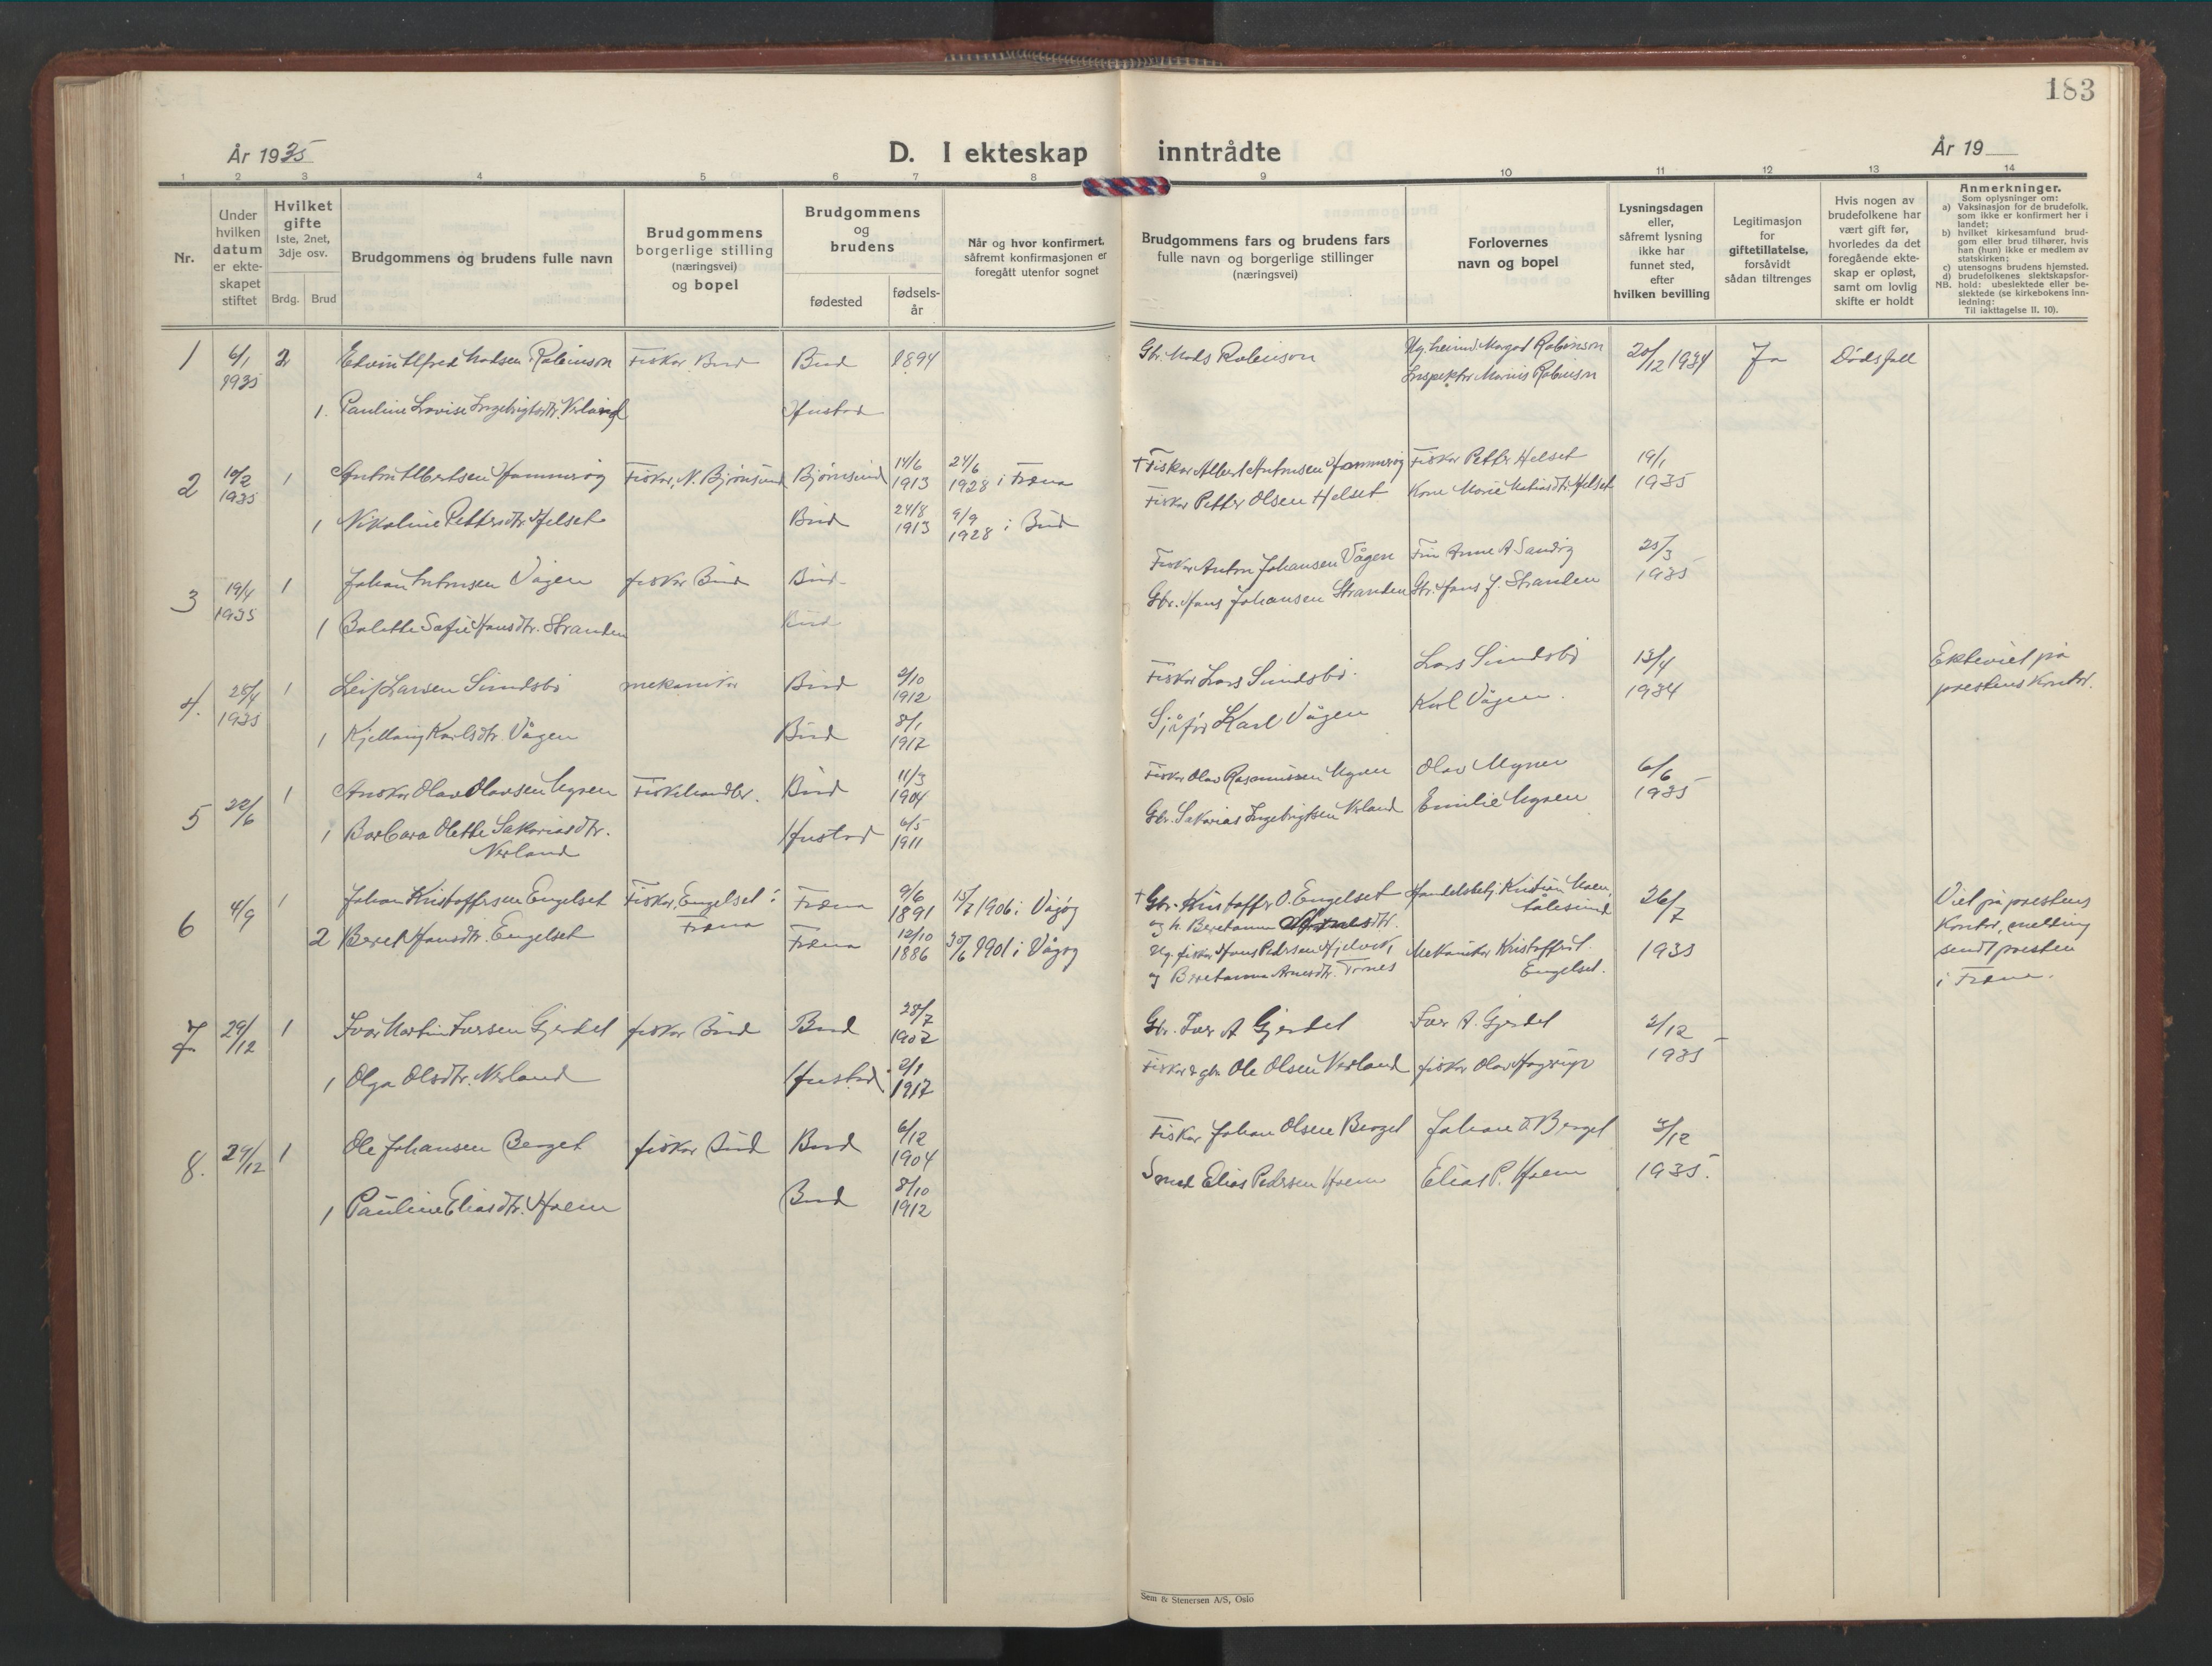 183
År 1935
D. I ekteskap inntrådte
År 19
1 2 3 4 5 6 7 8 9 10 11 12 13 14
Nr.
Under hvilken datum er ekte-skapet stiftet
Hvilket gifte
1ste, 2net, 3dje osv.
Brdg. Brud
Brudgommens og brudens fulle navn
Brudgommens borgerlige stilling (næringsvei) og bopel
Brudgommens og brudens
fødested
fødsels-år
Når og hvor konfirmert, såfremt konfirmasjonen er foregått utenfor sognet
Brudgommens fars og brudens fars fulle navn og borgerlige stillinger (næringsvei)
Forlovernes navn og bopel
Lysningsdagen eller, såfremt lysning ikke har funnet sted, efter hvilken bevilling
Legitimasjon for giftetillatelse, forsåvidt sådan tiltrenges
Hvis nogen av brudefolkene har vært gift før, hvorledes da det foregående ekte-skap er opløst, samt om lovlig skifte er holdt
Anmerkninger.
Som oplysninger om:
a) Vaksinasjon for de brudefolk, som ikke er konfirmert her i landet;
b) hvilket kirkesamfund brud-gom eller brud tilhører, hvis han (hun) ikke er medlem av statskirken;
c) utensogns brudens hjemsted.
d) brudefolkenes slektskapsfor-hold: ubeslektede eller be-slektede (se kirkebokens inn-ledning:
NB.
Til iakttagelse II. 10).
1 6/1 1935 2 Edvin Alfred Madsen Robinson Fisker Bud Bud 1894 Gbr. Mads Robinson Margad Robinson 20/12 1934 Ja Dødsfall
Inspektør Marius Robinson
1. Pauline Lovise Ingebrigtsdtr. Verland Hustad
2 10/2 1935 1 Anton Albertsen Hammerøy Fisker, N. Bjørnsund Bjørnsund 14/6 1913 24/6 1928 i Fræna † Fisker Albert Antonsen Hammerøy Fisker Petter Helset 19/1 1935
1 Nikoline Pettersdtr. Helset Bud 24/8 1913 9/9 1928 i Bud Fisker Petter Olsen Helset Kone Marie Matiasdtr. Helset
3 19/4 1935 1 Johan Antonsen Vågen fisker Bud Bud Fisker Anton Johansen Vågen Anne A. Sandøy 25/3 1935
1 Bolette Sofie Hansdtr. Stranden Bud Gbr. Hans Johansen Stranden Gbr. Hans J. Stranden
4. 25/4 1935 1 Leif Larsen Sundsbø mekaniker Bud 2/10 1912 Fisker Lars Sundsbø. Lars Sundsbø 13/4 1934 Ekteviet på prestens kontor.
1 Kjellaug Karlsdtr. Vågen Bud 8/1 1917 Karl Vågen Karl Vågen.
5 22/6 1 Ansker Olav Olavsen Myren Fiskehandler. Bud 11/3 1904 Fisker Olav Rasmussen Myren Olav Myren 6/6 1935
1 Barbara Olette Sakariasdtr. Nerland Hustad 6/5 1911 Gbr. Sakarias Ingebrigtsen Nerland Emilie Myren
6 4/9 1 Johan Kristoffersen Engelset Fisker, Engelset i Fræna Fræna 9/6 1891 15/7 1906 i Vågøy † Gbr. Kristoffer O. Engelset og h. Beretanna Handelsbetj. Kristian Moen, Ålesund 26/7 1935 Viet på prestens kontor, melding sendt presten i Fræna.
2 Beret Hansdtr. Engelset Fræna 12/10 1886 30/6 1901 i Vågøy fisker Hans Pedersen Hjelvik, og Beretanna Arnesdtr. Tornes Mekaniker Kristoffer Engelset.
7 29/12 1 Ivar Martin Iversen Gjerdet fisker Bud Bud 28/7 1902 Gbr. Iver A Gjerdet Iver A. Gjerdet 2/12 1935
1 Olga Olsdtr. Nerland Hustad 2/1 1917 Fisker & gbr. Ole Olsen Nerland fisker Olav
8. 29/12 1 Ole Johansen Berget fisker Bud Bud 6/12 1904 Fisker Johan Olsen Berget Johan O. Berget 3/12 1935.
1 Pauline Eliasdtr. Hoem Bud 8/10 1912 Smed Elias Pedersen Hoem Elias P. Hoem
Sem & Stenersen A/S, Oslo